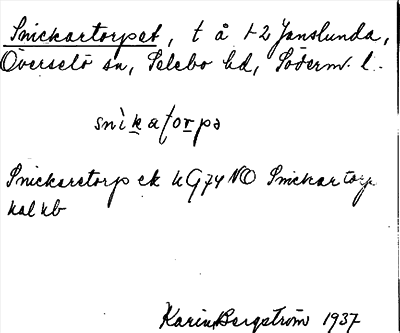 Snickartorpet, t å 1-2 Janslunda,
Överselö sn, Selebo hd, Söderm. l.
snìkaʃorpə
Snickaretorp ek u G74 NO Snickartorp
hal kb
Karin Bergström 1937